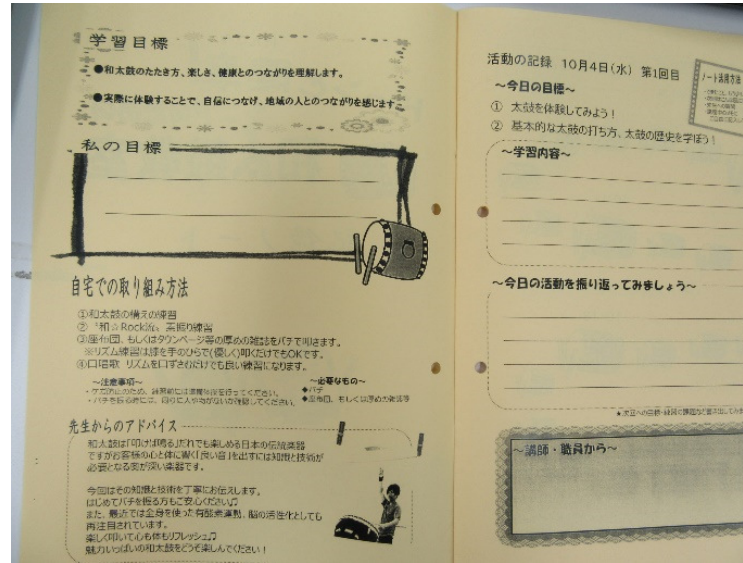 学習目標
●和太鼓のたたき方、楽しさ、健康とのつながりを理解します。
●実際に体験することで、自信につなげ、地域の人とのつながりを感じます。
私の目標
自宅での取り組み方法
①和太鼓の構えの練習
② 〝和☆Rock流〟素振り練習
③座布団、もしくはタウンページ等の厚めの雑誌をバチで叩きます。
※リズム練習は膝を手のひらで(優しく)叩くだけでもOKです。
④口唱歌 リズムを口ずさむだけでも良い練習になります。
～注意事項～
・ケガ防止のため、練習前には準備体操を行ってください。
・バチを振る時には、周りに人や物がないか確認してください。
～必要なもの～
◆バチ
◆座布団、もしくは厚めの雑誌等
先生からのアドバイス
和太鼓は「叩けば鳴る」だれでも楽しめる日本の伝統楽器
ですがお客様の心と体に響く「良い音」を出すには知識と技術が
必要となる奥が深い楽器です。
今回はその知識と技術を丁寧にお伝えします。
はじめてバチを振る方もご安心ください♫
また、最近では全身を使った有酸素運動、脳の活性化としても
再注目されています。
楽しく叩いて心も体もリフレッシュ♫
魅力いっぱいの和太鼓をどうぞ楽しんでください！
活動の記録 10月4日(水) 第1回目
～今日の目標～
① 太鼓を体験してみよう！
② 基本的な太鼓の打ち方、太鼓の歴史を学ぼう！
ノート活用方法
～学習内容～
～今日の活動を振り返ってみましょう～
～講師・職員から～